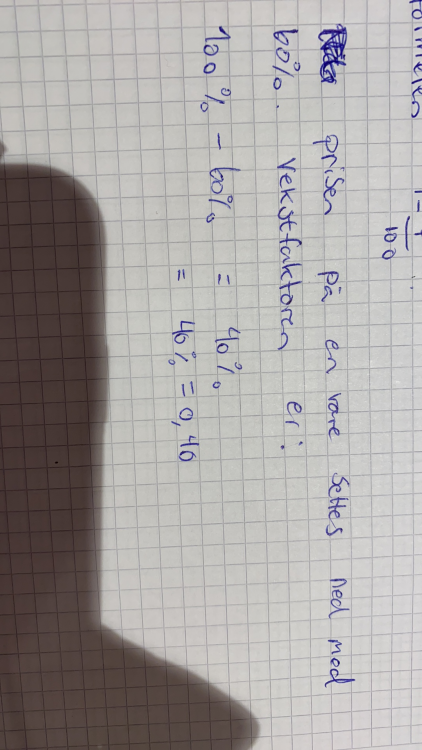 prisen på en vare settes ned med
60%. Vekstfaktoren er:
100% - 60% = 40%
= 40% = 0,40